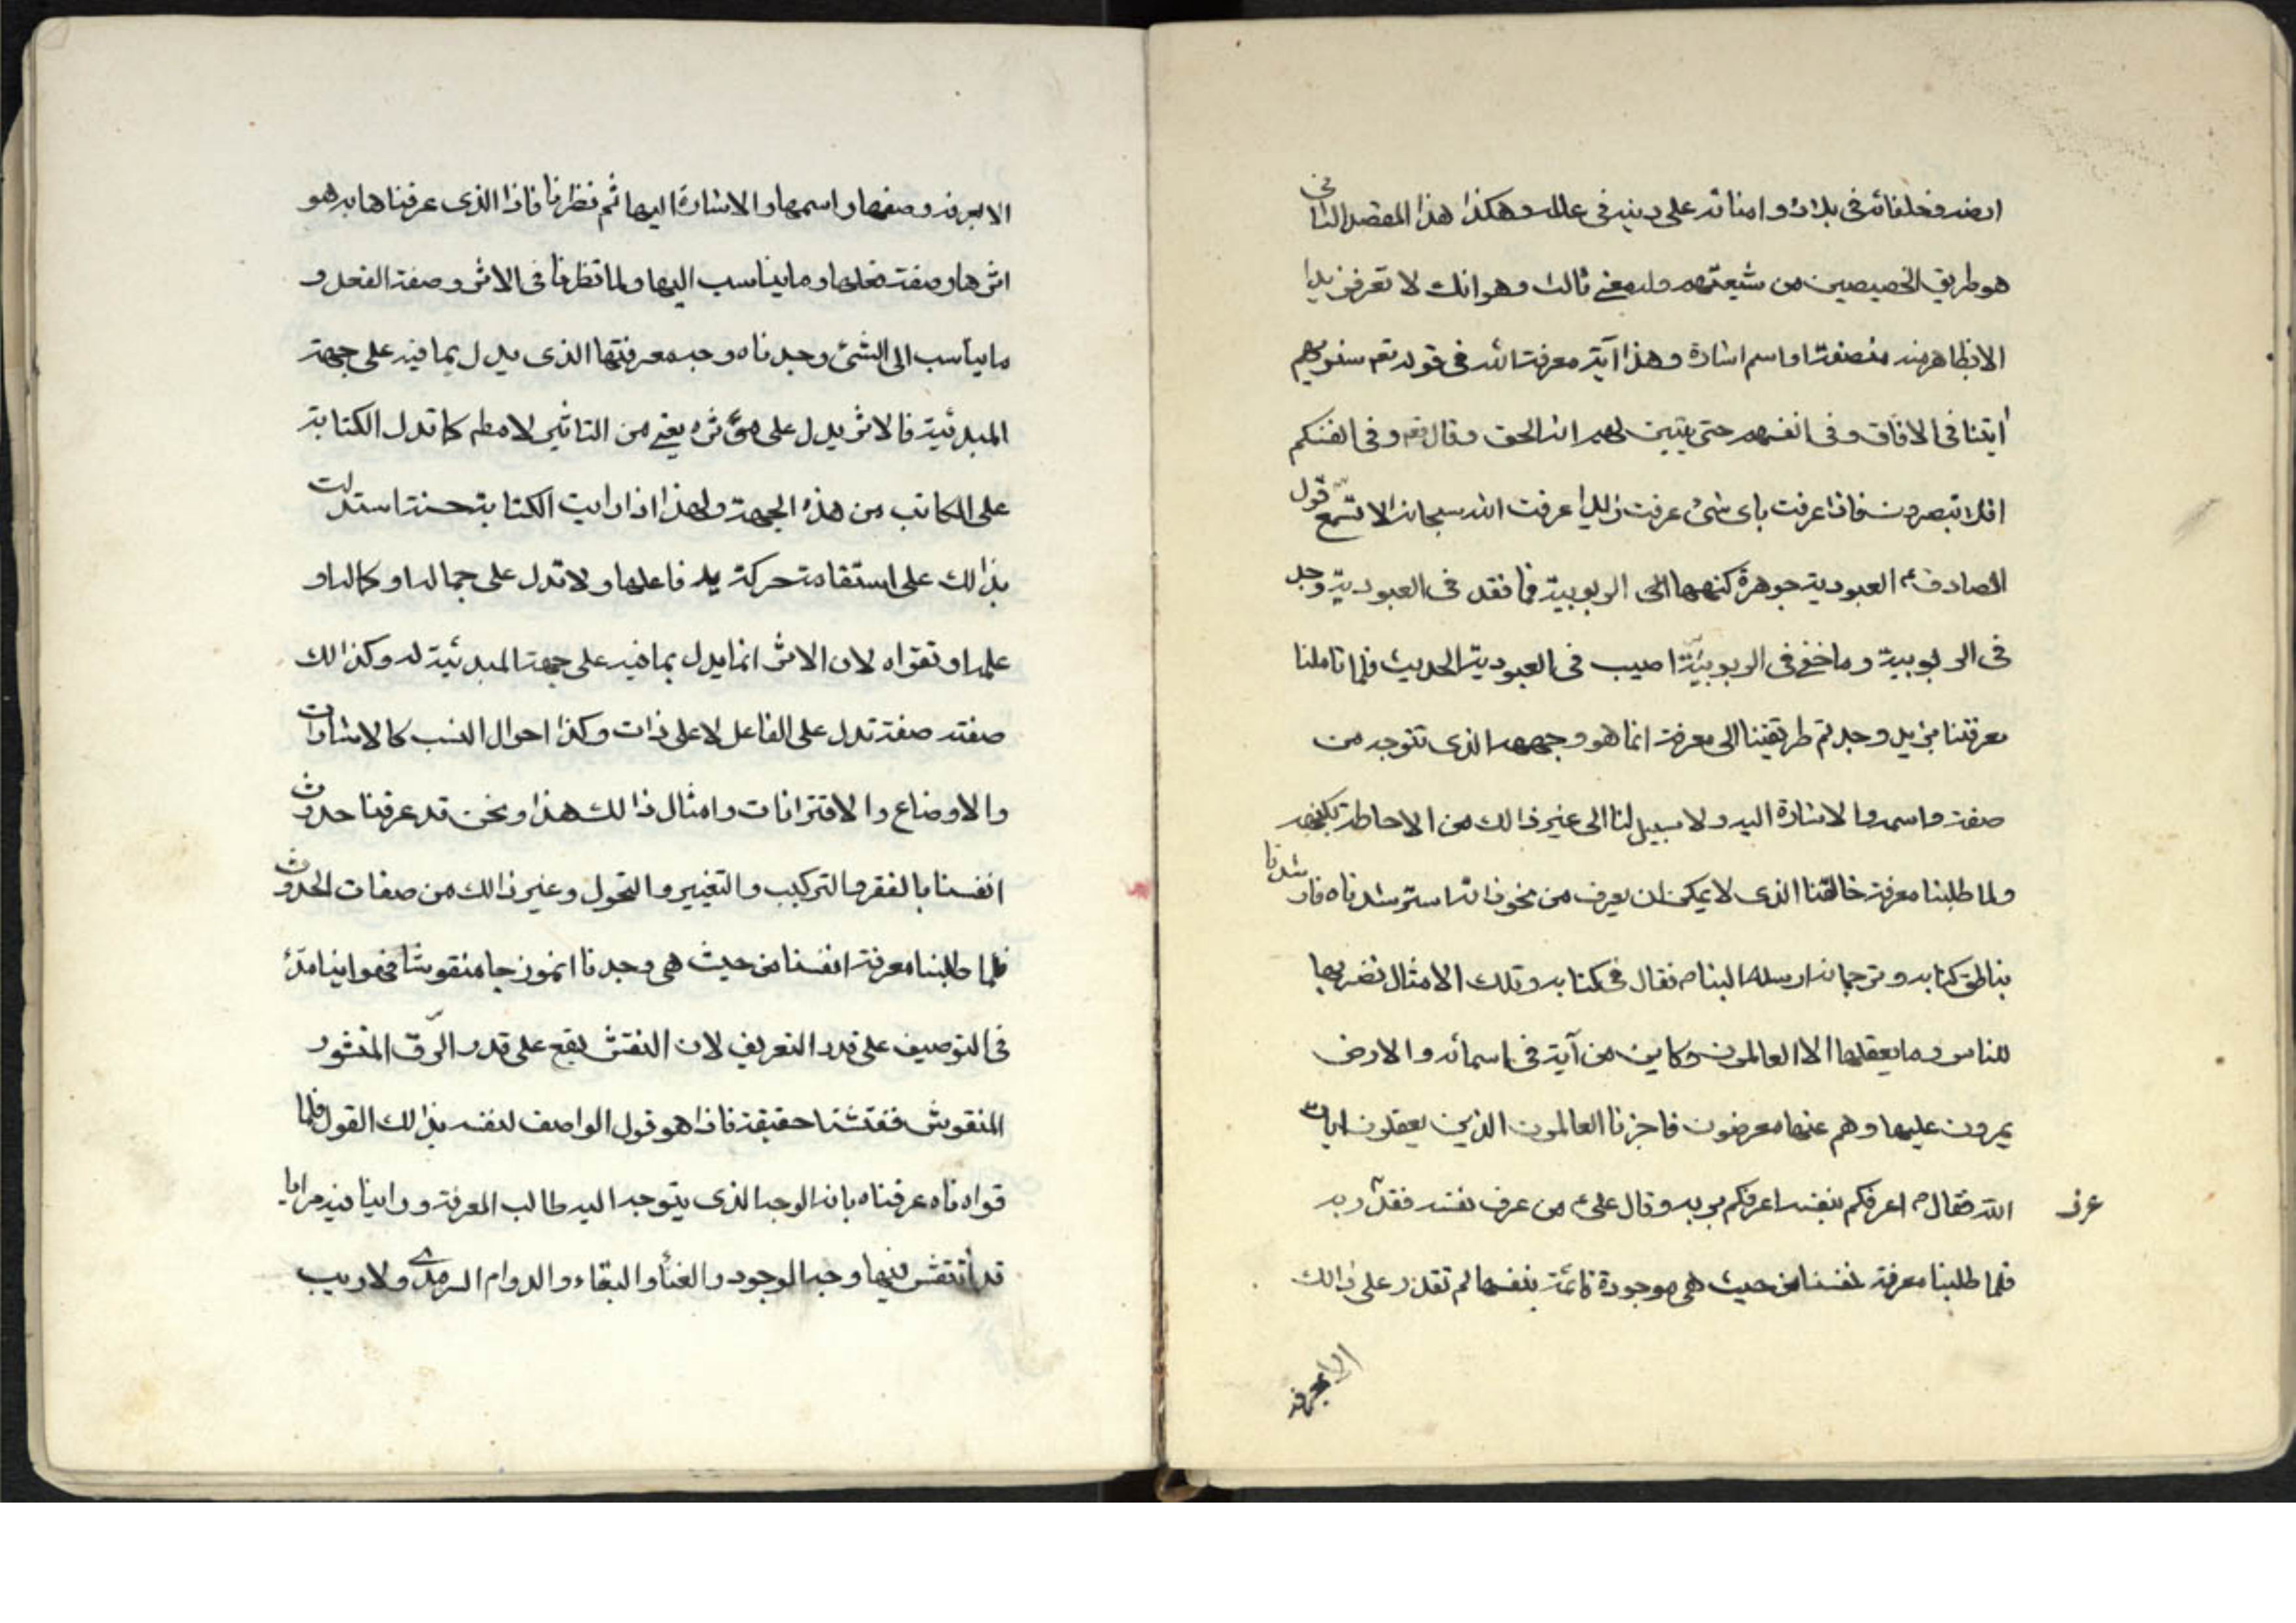 ارضه وخلفائه فى بلاده و امنائه على دينه فى عالمه وهكذا هذا المقصد الثانى
هو طريق الخصيصين من شيعتهم وله معنى ثالث وهو انك لا تعرف زيدا
الا بظاهر منه من صفة او اسم اشارة وهذا آية معرفة الله فى قوله تعم سنريهم
آيتنا فى الافاق وفى انفسهم حتى يتبين لهم انه الحق وقال تعم وفى انفسكم
افلا تبصرون فاذا عرفت باى شئ عرفت زيدا عرفت الله سبحانه الا تسمع قول
الصادق ع العبودية جوهرة كنهها الربوبية فما فقد فى العبودية وجد
فى الربوبية وما خفى فى الربوبية اصيب فى العبودية الحديث فلما تاملنا
معرفتنا بزيد وجدتم طريقنا الى معرفة انما هو وجهه الذى تتوجه من
صفة واسمه والاشارة اليه ولا سبيل لنا الى غير ذالك من الاحاطة بكنهه
ولما طلبنا معرفة خالقنا الذى لا يمكن ان يعرف من نحو ذاته استرشدناه فارشدنا
بناطق كتابه وترجمانه ارسله الينا ص فقال فى كتابه وتلك الامثال نضربها
للناس وما يعقلها الا العالمون وكاين من آية فى اسمائه والارض
يمرون عليها وهم عنها معرضون فاخبرنا العالمون الذين يعقلون ايات
الله فقال ص اعرفكم بنفسه اعرفكم بربه وقال على ع من عرف نفسه فقد ربه
عرف
فلما طلبنا معرفة انفسنا من حيث هى موجودة قائمة بنفسها لم نقدر على ذالك
الا بعرفه
الا بعرفه وصفها واسمها والاشارة اليها ثم نظرنا فاذا الذى عرفناها به هو
اثرها وصفة فعلها وما يناسب اليها ولما نظرنا فى الاثر وصفة الفعل و
ما يناسب الى الشئ وجدناه وجه معرفتها الذى يدل بما فيه على جهة
المبدئية فالاثر يدل على مؤثره يعنى من التاثير لا مطم كما تدل الكتابة
على الكاتب من هذه الجهة ولهذا اذا رايت الكتابة حسنة استدلت
بذالك على استقامة حركة يد فاعلها ولا تدل على جماله او كماله او
علمه او تقواه لان الاثر انما يدل بما فيه على جهة المبدئية له وكذالك
صفته صفة تدل على الفاعل لا على ذات وكذا احوال النسب كالاشارات
والاوضاع والاقترانات وامثال ذالك هذا ونحن قد عرفنا حدوث
انفسنا بالفقر والتركيب والتغيير والتحول وغير ذالك من صفات الحدوث
فلما طلبنا معرفة انفسنا من حيث هى وجدنا انموزجا منقوشا
فى التوصيف على قدر التعريف لان النقش يقع على قدر الرّق المنشور
المنقوش ففتشنا حقيقة فاذا هو قول الواصف لنفسه بذالك القول فلما
قراه ناه عرفناه بانه الوجه الذى يتوجه اليه طالب المعرفة وراينا فيه مرايا
قد انتقش فيها وجه الوجود والغناء والبقاء والدوام السرمدى ولا ريب